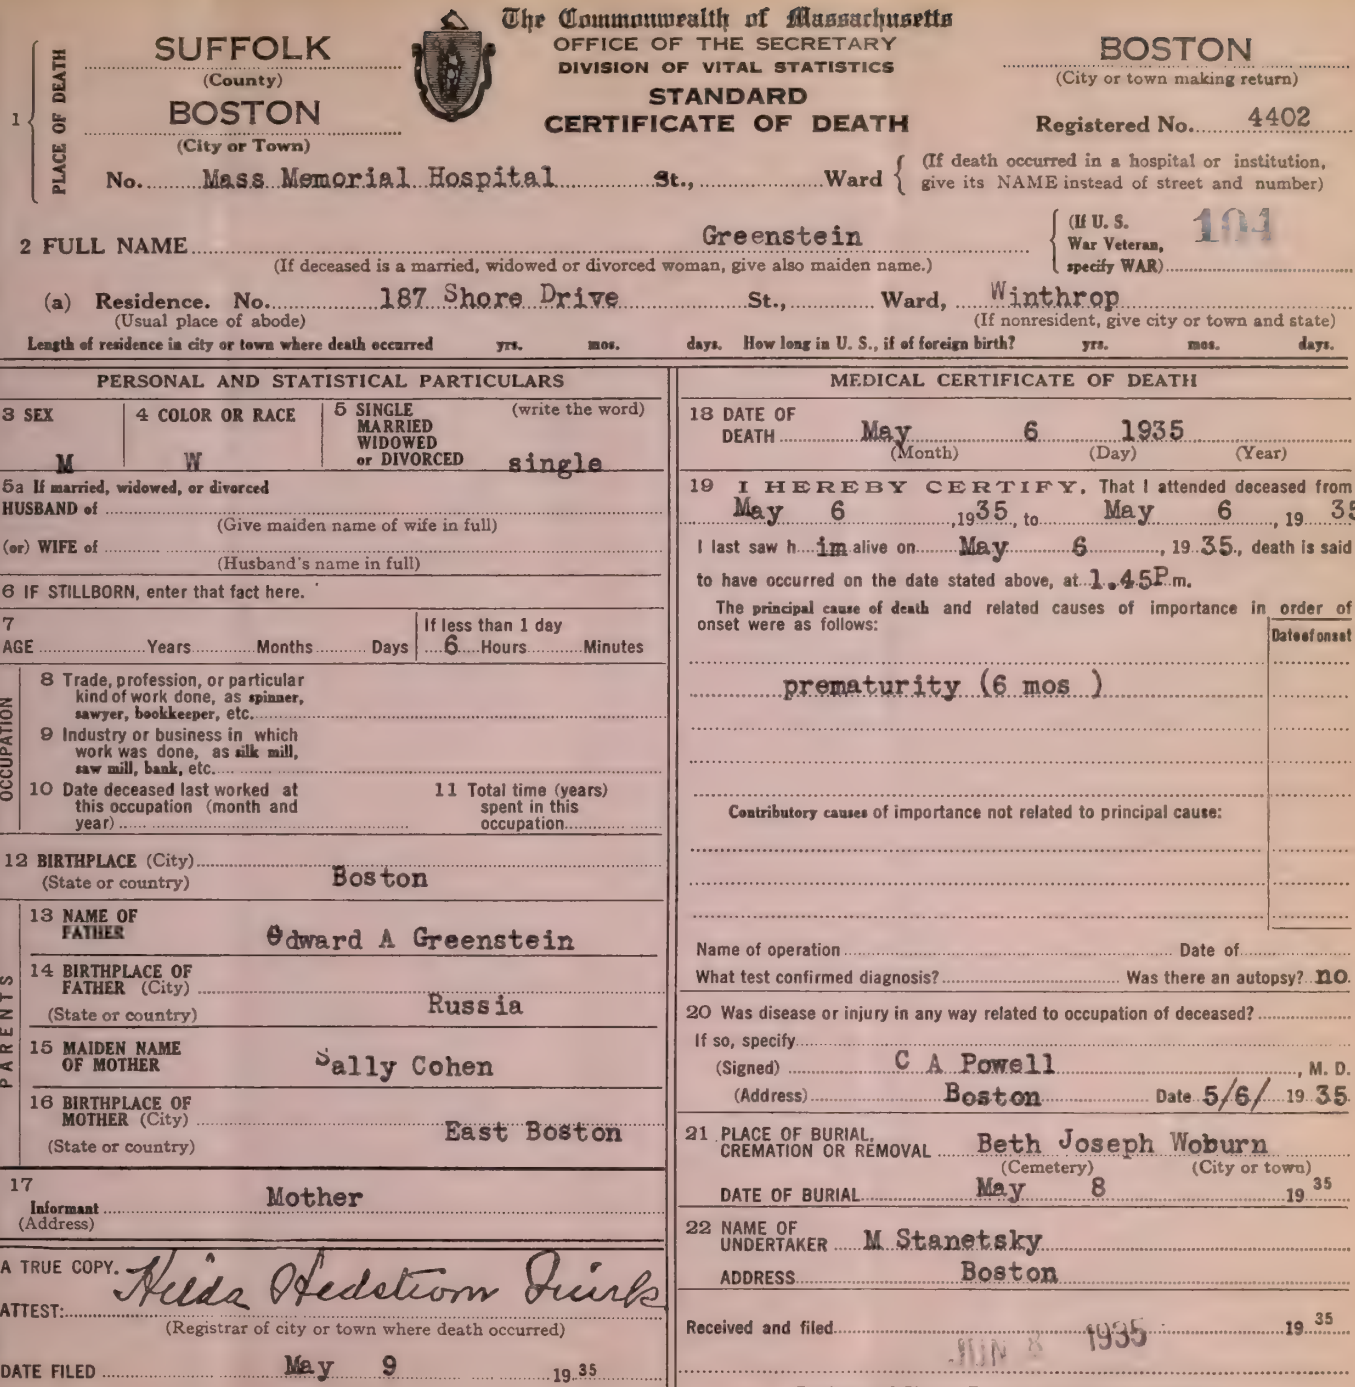 The Commonwealth of Massachusetts
OFFICE OF THE SECRETARY
DIVISION OF VITAL STATISTICS
STANDARD
CERTIFICATE OF DEATH
1 PLACE OF DEATH
SUFFOLK
(County)
BOSTON
(City or Town)
BOSTON
(City or town making return)
Registered No. 4402
No. Mass Memorial Hospital St., Ward
(If death occurred in a hospital or institution,
give its NAME instead of street and number)
2 FULL NAME Greenstein
(If deceased is a married, widowed or divorced woman, give also maiden name.)
(If U. S.
War Veteran,
specify WAR)
104
(a) Residence. No. 187 Shore Drive St., Ward, Winthrop
(Usual place of abode) (If nonresident, give city or town and state)
Length of residence in city or town where death occurred yrs. mos. days. How long in U. S., if of foreign birth? yrs. mos. days.
PERSONAL AND STATISTICAL PARTICULARS
3 SEX
M
4 COLOR OR RACE
W
5 SINGLE (write the word)
MARRIED
WIDOWED
or DIVORCED single
5a If married, widowed, or divorced
HUSBAND of
(Give maiden name of wife in full)
(or) WIFE of
(Husband's name in full)
6 IF STILLBORN, enter that fact here.
7
AGE Years Months Days
If less than 1 day
6 Hours Minutes
OCCUPATION
8 Trade, profession, or particular
kind of work done, as spinner,
sawyer, bookkeeper, etc.
9 Industry or business in which
work was done, as silk mill,
saw mill, bank, etc.
10 Date deceased last worked at
this occupation (month and
year)
11 Total time (years)
spent in this
occupation
12 BIRTHPLACE (City)
(State or country) Boston
PARENTS
13 NAME OF
FATHER Edward A Greenstein
14 BIRTHPLACE OF
FATHER (City)
(State or country) Russia
15 MAIDEN NAME
OF MOTHER Sally Cohen
16 BIRTHPLACE OF
MOTHER (City) East Boston
(State or country)
17
Informant Mother
(Address)
A TRUE COPY.
ATTEST: Hilda Hedstrom Quirk
(Registrar of city or town where death occurred)
DATE FILED May 9 19 35
MEDICAL CERTIFICATE OF DEATH
18 DATE OF
DEATH May 6 1935
(Month) (Day) (Year)
19 I HEREBY CERTIFY, That I attended deceased from
May 6 ,1935, to May 6 , 19 35
I last saw h im alive on May 6 , 19 35, death is said
to have occurred on the date stated above, at 1.45P.m.
The principal cause of death and related causes of importance in order of
onset were as follows:
Date of onset
prematurity (6 mos )
Contributory causes of importance not related to principal cause:
Name of operation Date of
What test confirmed diagnosis? Was there an autopsy? no
20 Was disease or injury in any way related to occupation of deceased?
If so, specify
(Signed) C A Powell , M. D.
(Address) Boston Date 5/6/ 19 35
21 PLACE OF BURIAL,
CREMATION OR REMOVAL Beth Joseph Woburn
(Cemetery) (City or town)
DATE OF BURIAL May 8 19 35
22 NAME OF
UNDERTAKER M Stanetsky
ADDRESS Boston
Received and filed 19 35
JUN 8 1935